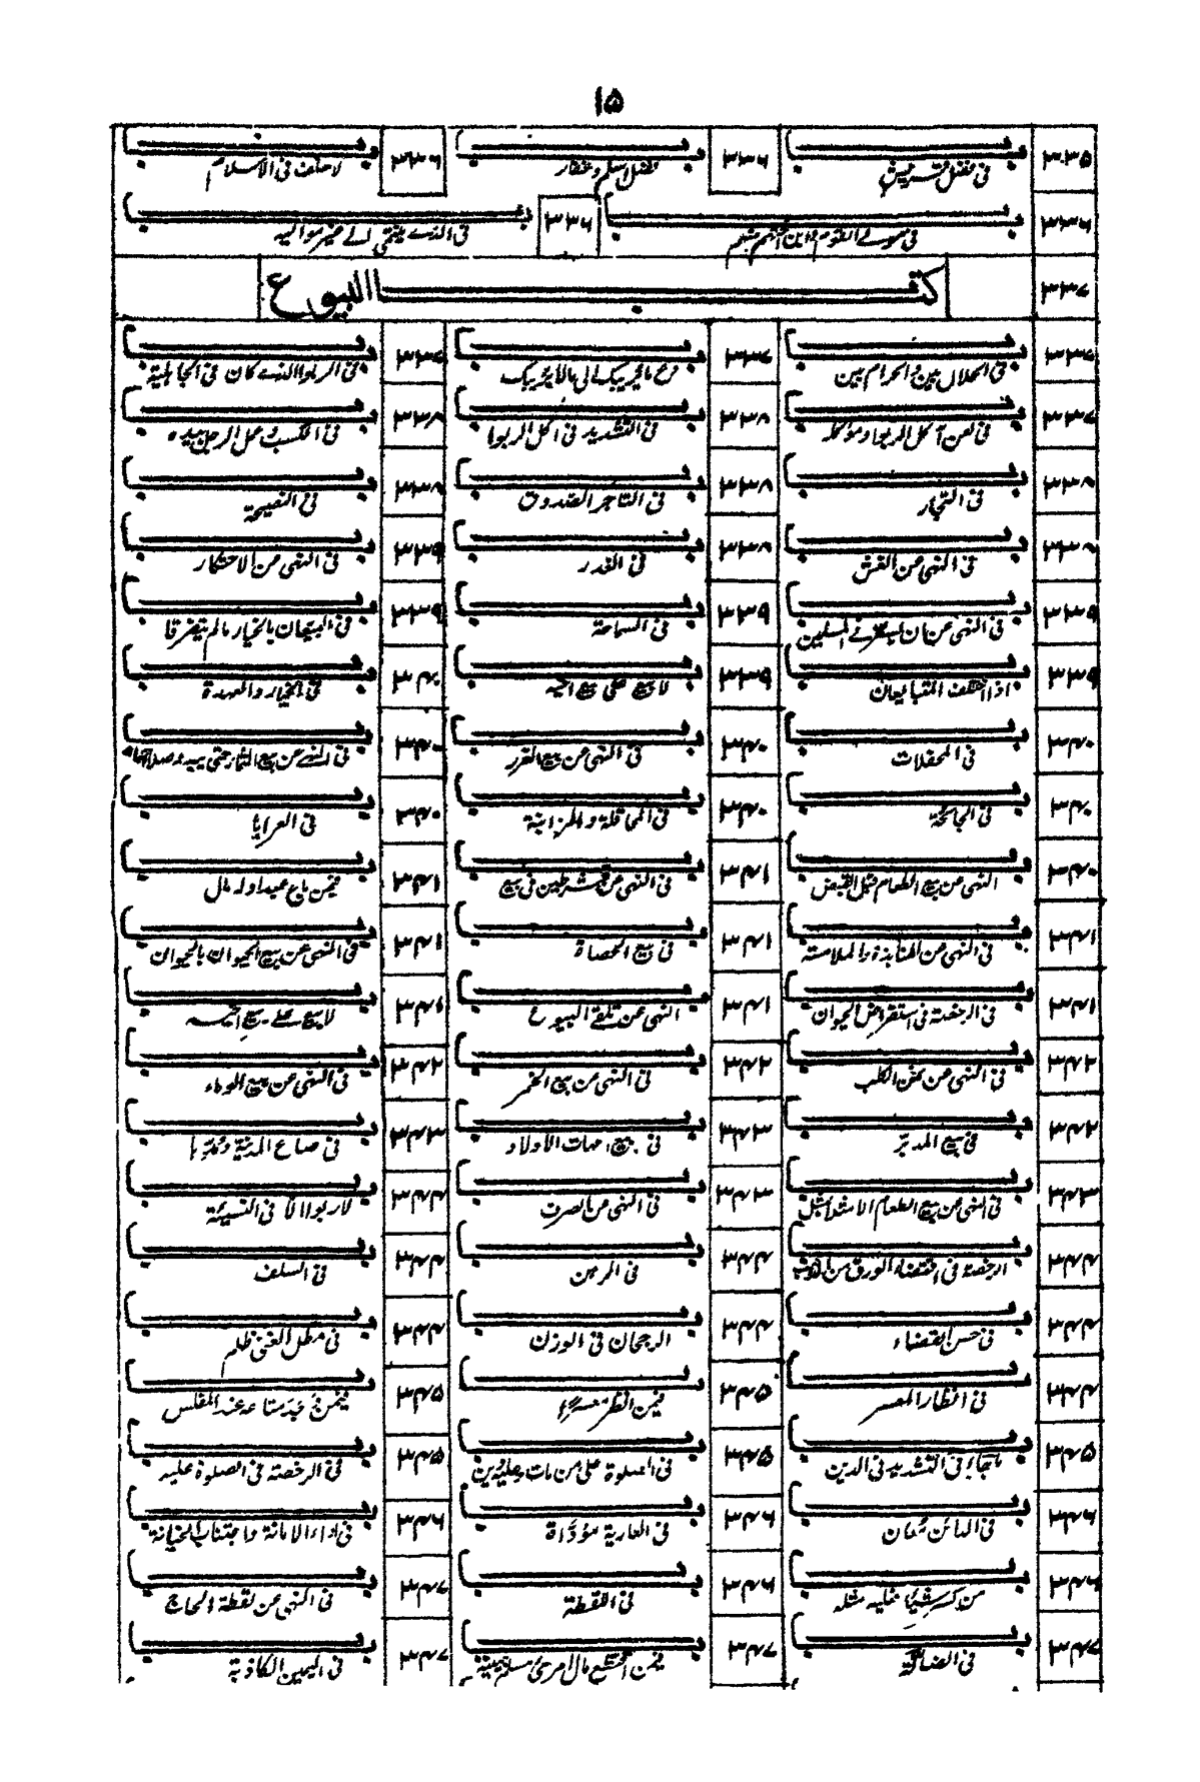 ۱۵
۳۳۵ باب فی فضل قریش ۳۳۶ باب فضل اسلم وغفار ۳۳۶ باب لا حلف فی الاسلام
۳۳۶ باب فی مولے القوم وابن اختهم منهم ۳۳۶ باب فی الذے ینتمی الے غیر موالیه
۳۳۷ کتاب البیوع
۳۳۷ باب فی الحلال بین والحرام بین ۳۳۷ باب دع مایریبک الی مالا یریبک ۳۳۷ باب فی الربوا الذے کان فی الجاهلیة
۳۳۷ باب فی لعن آکل الربوا وموکله ۳۳۸ باب فی التشدید فی اکل الربوا ۳۳۸ باب فی الکسب وعمل الرجل بیده
۳۳۸ باب فی التجار ۳۳۸ باب فی التاجر الصدوق ۳۳۸ باب فی النصیحة
۳۳۸ باب فی النهی عن الغش ۳۳۸ باب فی الغدر ۳۳۹ باب فی النهی عن الاحتکار
۳۳۹ باب فی النهی عن ان المسلمین ۳۳۹ باب فی السماحة ۳۳۹ باب فی البیعان بالخیار مالم یتفرقا
۳۳۹ باب اذا اختلف المتبایعان ۳۳۹ باب لا یبیع علی بیع اخیه ۳۴۰ باب فی الخیار والعهدة
۳۴۰ باب فی المحفلات ۳۴۰ باب فی النهی عن بیع الغرر ۳۴۰ باب فی النهے عن بیع الثمار حتی یبدو صلاحها
۳۴۰ باب فی الجائحة ۳۴۰ باب فی المحاقلة والمزابنة ۳۴۰ باب فی العرایا
۳۴۰ باب النهی عن بیع الطعام قبل القبض ۳۴۱ باب فی النهی عن شرطین فی بیع ۳۴۱ باب فیمن باع عبدا وله مال
۳۴۱ باب فی النهی عن المنابذة والملامسة ۳۴۱ باب فی بیع الحصاة ۳۴۱ باب فی النهی عن بیع الحیوان بالحیوان
۳۴۱ باب فی الرخصة فی استقراض الحیوان ۳۴۱ باب النهی عن تلقے البیوع ۳۴۲ باب لا یبیع علے بیع اخیه
۳۴۲ باب فی النهی عن ثمن الکلب ۳۴۲ باب فی النهی من بیع الخمر ۳۴۲ باب فی النهی عن بیع الولاء
۳۴۲ باب فی بیع المدبر ۳۴۳ باب فی بیع امهات الاولاد ۳۴۳ باب فی صاع المدینة ومدها
۳۴۳ باب فی النهی عن بیع الطعام الا مثلا بمثل ۳۴۳ باب فی النهی من الصرف ۳۴۴ باب لا ربوا الا فی النسیئة
۳۴۴ باب الرخصة فی اقتضاء الورق من الذهب ۳۴۴ باب فی الرهن ۳۴۴ باب فی السلف
۳۴۴ باب فی حسن القضاء ۳۴۴ باب الرجحان فی الوزن ۳۴۴ باب فی مطل الغنی ظلم
۳۴۴ باب فی انظار المعسر ۳۴۵ باب فیمن انظر معسرا ۳۴۵ باب فیمن وجد متاعه عند المفلس
۳۴۵ باب ماجاء فی التشدید فی الدین ۳۴۵ باب فی الصلوة علی من مات وعلیه دین ۳۴۵ باب فی الرخصة فی الصلوة علیه
۳۴۶ باب فی الدائن معان ۳۴۶ باب فی العاریة مؤداة ۳۴۶ باب فی اداء الامانة واجتناب الخیانة
۳۴۶ باب من کسر شیئا فعلیه مثله ۳۴۶ باب فی اللقطة ۳۴۷ باب فی النهی عن لقطة الحاج
۳۴۷ باب فی الضالة ۳۴۷ باب فیمن اقتطع مال امرئ مسلم بیمینه ۳۴۷ باب فی الیمین الکاذبة